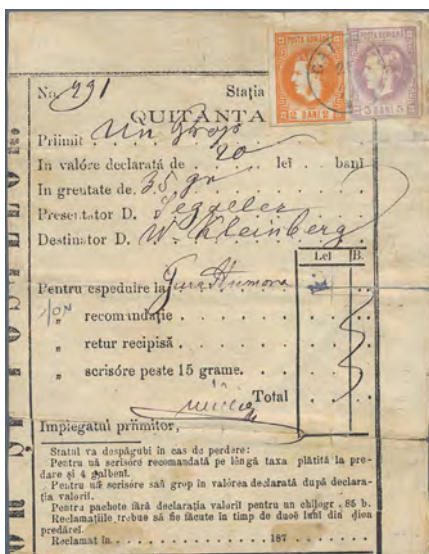 POSTA ROMANA
2 BANI 2
POSTA ROMANA
3 BANI 3
No. 291 Stația
QUITANTA
Priimit Un Grop
In valóre declarată de 20 lei . . banĭ
In greutate de 35 gr
Presentator D.
Destinator D. W. Kleinberg
Lei B.
Pentru espeduire la Gura Humora
„ recomandație . . . .
„ retur recipisă . . . .
„ scrisóre peste 15 grame.
Total
Impiegatul priimitor,
Statul va despăgubi în cas de perdere:
Pentru uă scrisóre recomandată pe lêngă taxa plătită la pre-
dare și 4 galbenĭ.
Pentru uă scrisóre saŭ grop in valórea declarată după declara-
ția valoriĭ.
Pentru pachete fără declarația valoriĭ pentru un chilogr. 85 b.
Reclamațiile trebue să fie făcute în timp de duoĕ lunĭ din ḑioa
predăreĭ.
Reclamat în . . . . . . . . . . 187 . . . . . .